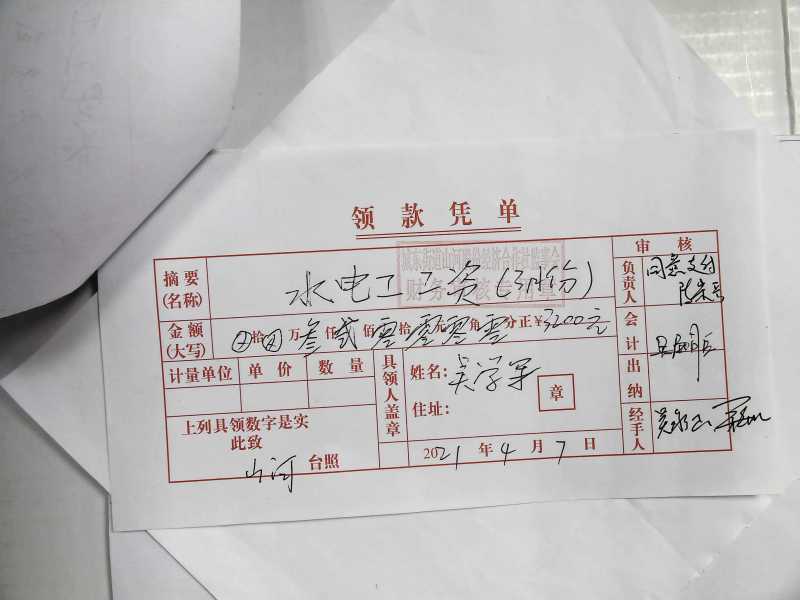 领款凭单
审核
摘要(名称)
水电工工资(3月份)
城东街道山河股份经济合作社监事会
财务审核专用章
负责人
同意支付
金额(大写)
拾万仟佰拾元角分正¥3200元
叁 贰 零 零 零 零
会计
出纳
计量单位 单价 数量
具领人盖章
姓名:吴学军
章
住址:
上列具领数字是实
此致
山河 台照
2021年4月7日
经手人